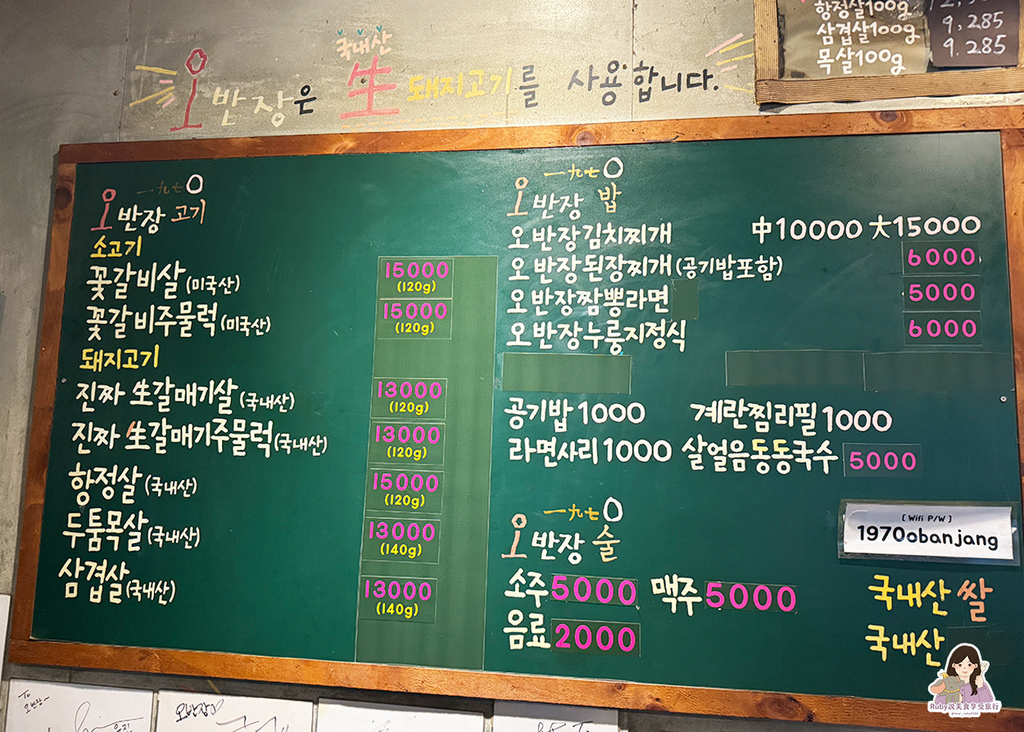 국내산
오반장은 生 돼지고기를 사용합니다.
항정살100g
삼겹살100g 9,285
목살100g 9.285
一九七O
오반장 고기
소고기
꽃갈비살(미국산) 15000 (120g)
꽃갈비주물럭(미국산) 15000 (120g)
돼지고기
진짜 生갈매기살(국내산) 13000 (120g)
진짜 生갈매기주물럭(국내산) 13000 (120g)
항정살(국내산) 15000 (120g)
두툼목살(국내산) 13000 (140g)
삼겹살(국내산) 13000 (140g)
一九七O
오반장 밥
오반장김치찌개 中10000 大15000
오반장된장찌개(공기밥포함) 6000
오반장짬뽕라면 5000
오반장누룽지정식 6000
공기밥 1000 계란찜리필 1000
라면사리 1000 살얼음동동국수 5000
一九七O
오반장 술
소주 5000 맥주 5000
음료 2000
[ Wifi P/W ]
1970obanjang
국내산 쌀
국내산
To
오반장~
오반장
Ruby說美食享受旅行